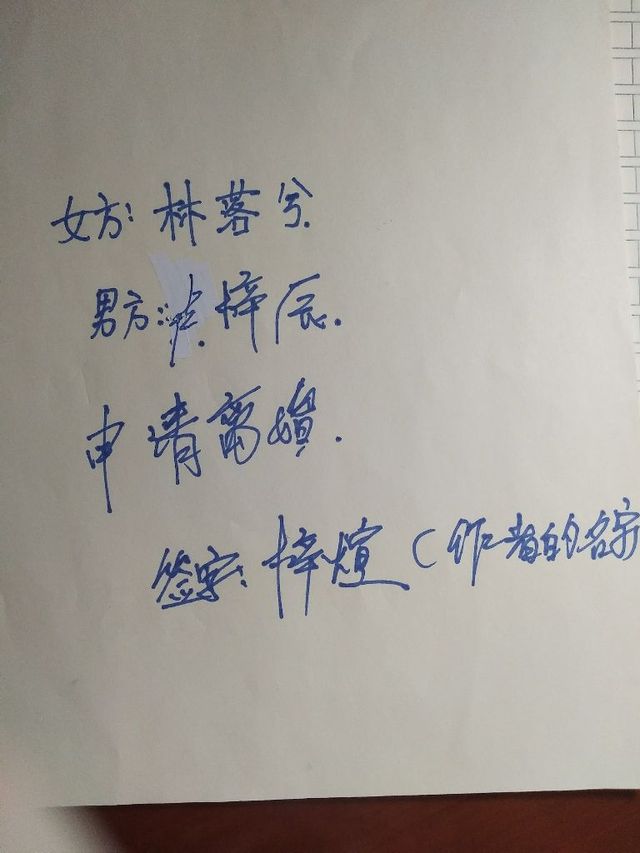 女方: 林落兮.
男方: 梓辰.
申请离婚.
签字: 梓煊 (作者的名字